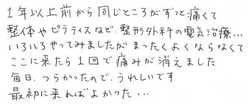 1年以上前から同じところがずっと痛くて
整体やピラティスなど整形外科の電気治療…
いろいろやってみましたがまったくよくならなくて
ここに来たら1回で痛みが消えました
毎日、つらかったので、うれしいです
最初に来ればよかった…